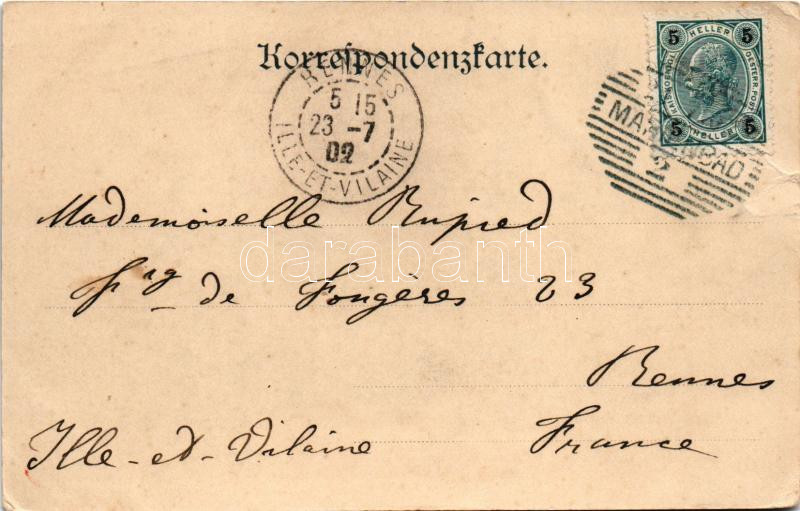 Korrespondenzkarte.
RENNES
5 15
23 -7
02
ILLE-ET-VILAINE
5 HELLER 5
KAIS. KÖNIGL.
OESTERR. POST
5 HELLER 5
MARIENBAD
2
Mademoiselle Rupied
Frg de Fougères 23
Rennes
Ille-et-Vilaine France
darabanth